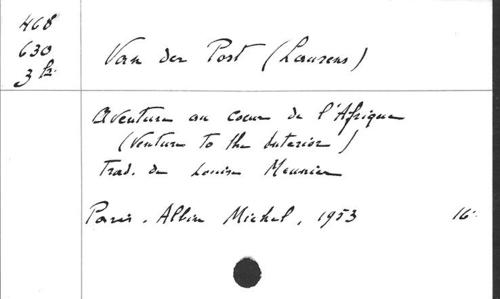 468
630
3 fr.
Van der Post (Laurens)
Aventure au coeur de l'Afrique
(Venture to the Interior)
Trad. de Louise Meunier
Paris. Albin Michel, 1953 16°